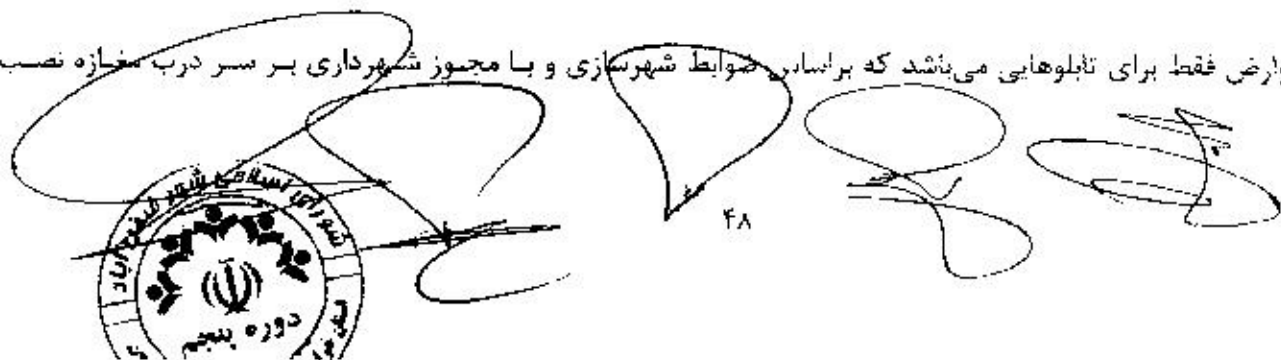 وارض فقط برای تابلوهایی می‌باشد که براساس ضوابط شهرسازی و با مجوز شهرداری بر سر درب مغازه نصب
۴۸
شورای اسلامی شهر آباد
دوره پنجم